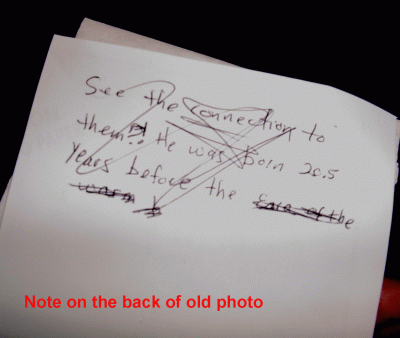 See the connection to
them?! He was Born 20.5
Years before the
Note on the back of old photo